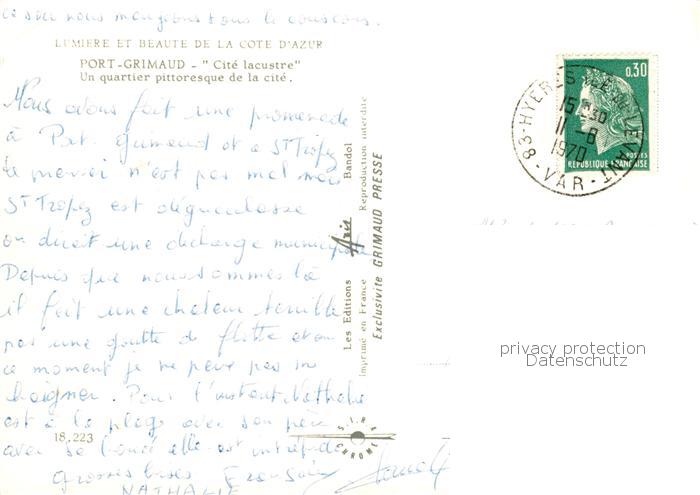 ce soir nous mangeons tous le couscous.
LUMIERE ET BEAUTE DE LA COTE D'AZUR
PORT-GRIMAUD - " Cité lacustre"
Un quartier pittoresque de la cité.
Nous avons fait une promenade
à Port Grimaud et à St Tropez
le premier n'est pas mal mais
St Tropez est dégueulasse
on dirait une décharge municipale
Depuis que nous sommes là
il fait une chaleur terrible
pas une goutte de flotte et en
ce moment je ne peux pas me
baigner. Pour l'instant Nathalie
est à la plage avec son père
avec sa bouée elle est intrépide
grosses bises Françoise
NATHALIE
18.223
Les Editions Aris Bandol
Imprimé en France Reproduction interdite
Exclusivité GRIMAUD PRESSE
S.I.R.A.
CHROME
0,30
POSTES
REPUBLIQUE FRANÇAISE
83-HYERES LE LEVANT
15-30
11-8
1970
-VAR-
privacy protection
Datenschutz